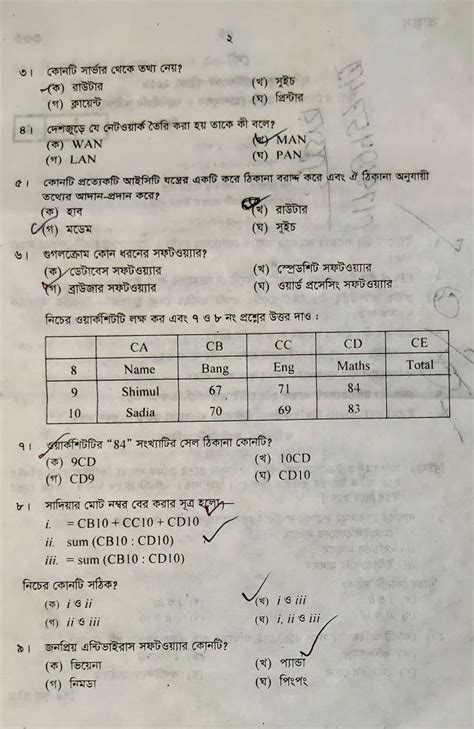 ২
৩। কোনটি সার্ভার থেকে তথ্য নেয়?
(ক) রাউটার (খ) সুইচ
(গ) ক্লায়েন্ট (ঘ) প্রিন্টার
৪। দেশজুড়ে যে নেটওয়ার্ক তৈরি করা হয় তাকে কী বলে?
(ক) WAN (খ) MAN
(গ) LAN (ঘ) PAN
৫। কোনটি প্রত্যেকটি আইসিটি যন্ত্রের একটি করে ঠিকানা বরাদ্দ করে এবং ঐ ঠিকানা অনুযায়ী
তথ্যের আদান-প্রদান করে?
(ক) হাব (খ) রাউটার
(গ) মডেম (ঘ) সুইচ
৬। গুগলক্রোম কোন ধরনের সফটওয়্যার?
(ক) ডেটাবেস সফটওয়্যার (খ) স্প্রেডশিট সফটওয়্যার
(গ) ব্রাউজার সফটওয়্যার (ঘ) ওয়ার্ড প্রসেসিং সফটওয়্যার
নিচের ওয়ার্কশিটটি লক্ষ কর এবং ৭ ও ৮ নং প্রশ্নের উত্তর দাও :
CA CB CC CD CE
8 Name Bang Eng Maths Total
9 Shimul 67 71 84
10 Sadia 70 69 83
৭। ওয়ার্কশিটটির “84” সংখ্যাটির সেল ঠিকানা কোনটি?
(ক) 9CD (খ) 10CD
(গ) CD9 (ঘ) CD10
৮। সাদিয়ার মোট নম্বর বের করার সূত্র হলো—
i. = CB10 + CC10 + CD10
ii. sum (CB10 : CD10)
iii. = sum (CB10 : CD10)
নিচের কোনটি সঠিক?
(ক) i ও ii (খ) i ও iii
(গ) ii ও iii (ঘ) i, ii ও iii
৯। জনপ্রিয় এন্টিভাইরাস সফটওয়্যার কোনটি?
(ক) ভিয়েনা (খ) প্যান্ডা
(গ) নিমডা (ঘ) পিংপং